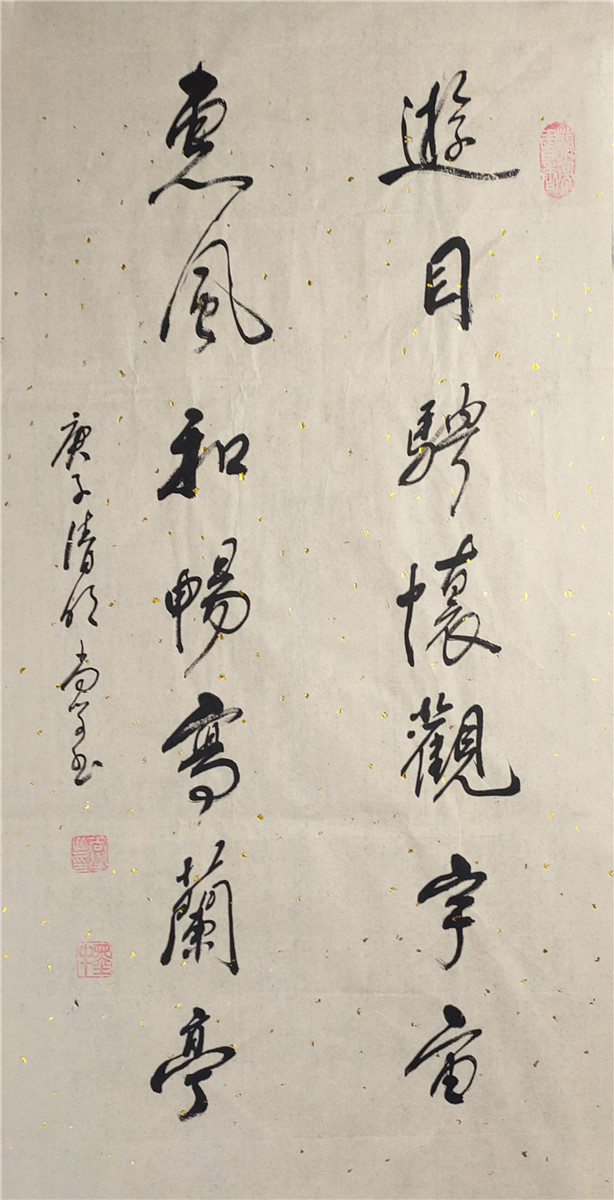 遊目騁懷觀宇宙
惠風和暢寫蘭亭
庚子清明尚學书